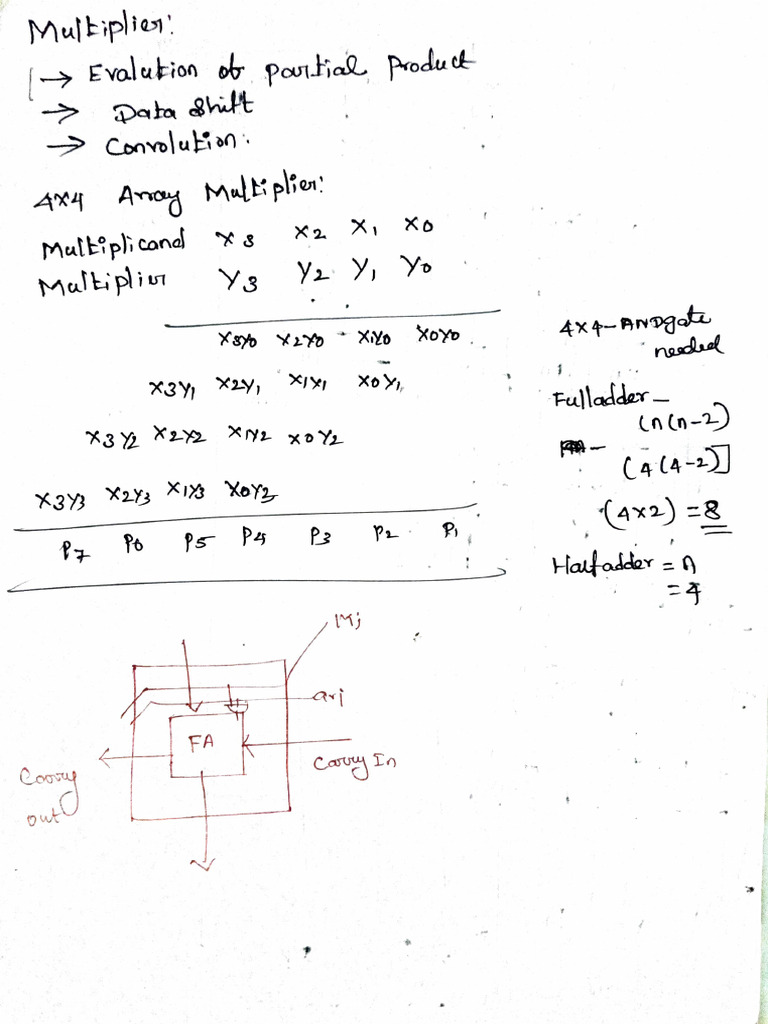 Multiplier:
→ Evalution of partial product
→ Data shift
→ Convolution:
4x4 Array Multiplier:
Multiplicand X3 X2 X1 X0
Multiplier Y3 Y2 Y1 Y0
X3Y0 X2Y0 X1Y0 X0Y0
X3Y1 X2Y1 X1Y1 X0Y1
X3Y2 X2Y2 X1Y2 X0Y2
X3Y3 X2Y3 X1Y3 X0Y2
P7 P6 P5 P4 P3 P2 P1
4x4-ANDgate
needed
Fulladder -
(n(n-2)
(4(4-2)]
(4x2) = 8
Halfadder = n
= 4
Mj
arj
FA
Carry In
Carry
out